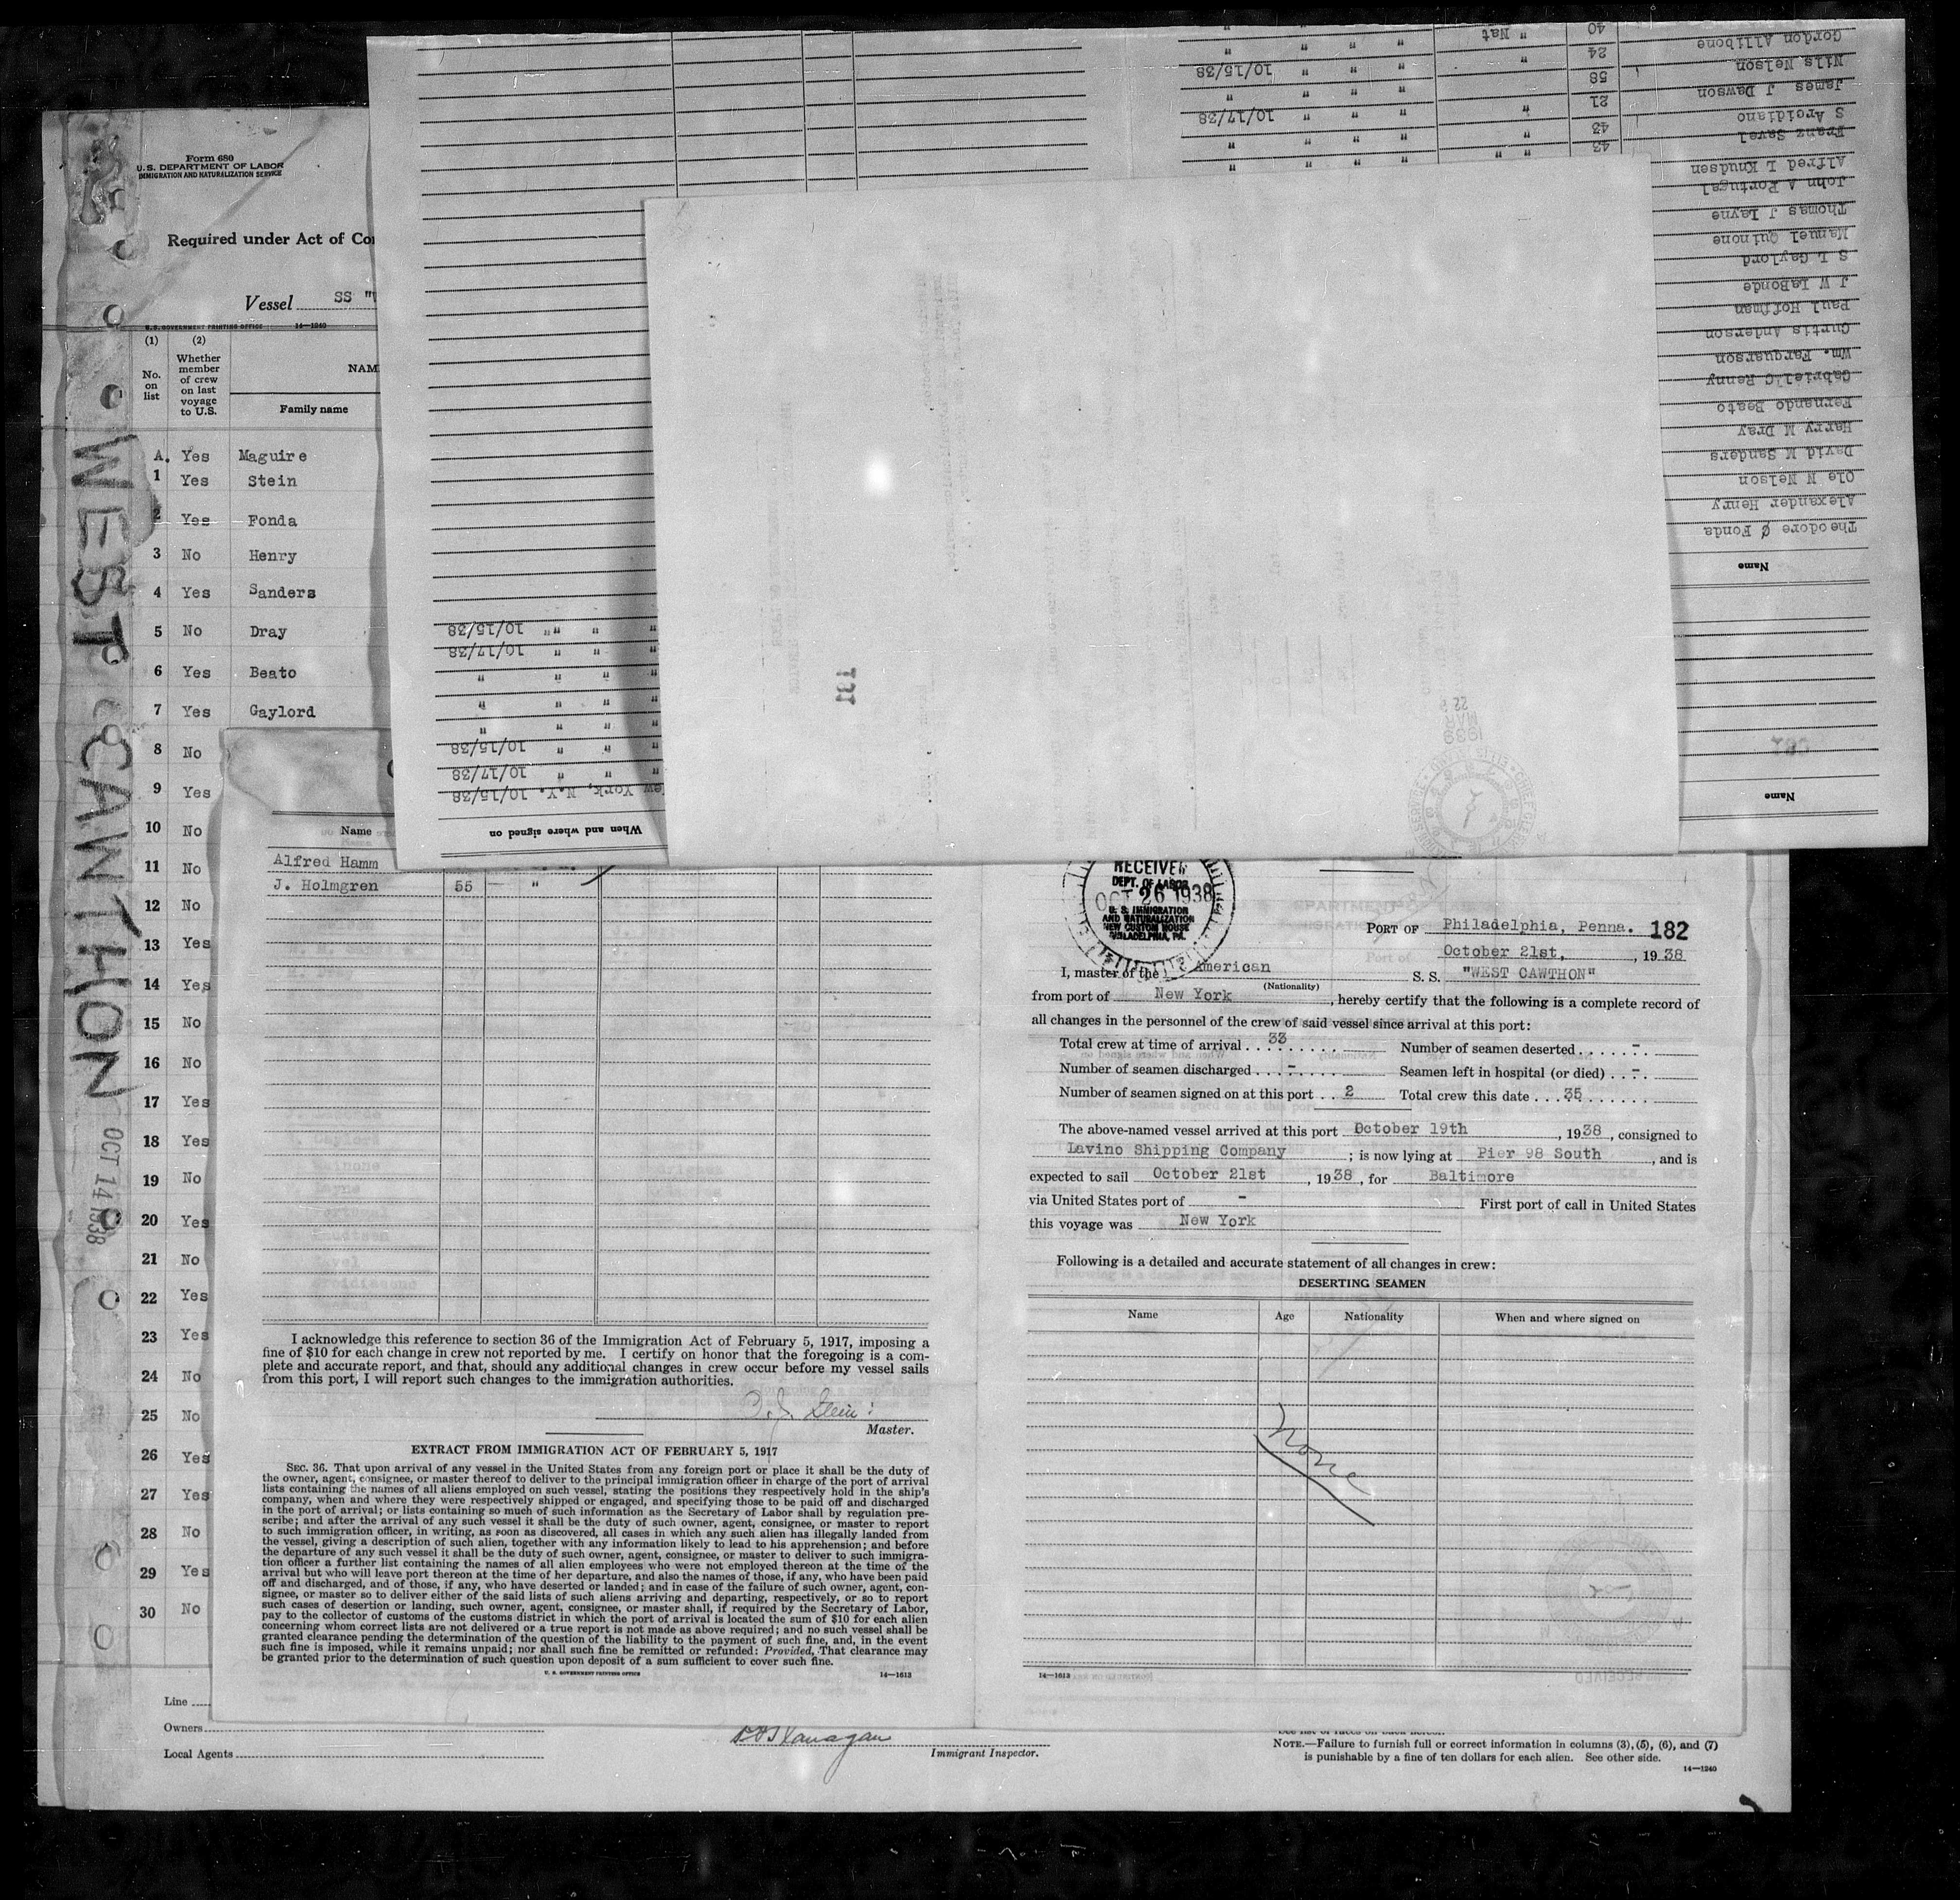 Form 680
U.S. DEPARTMENT OF LABOR
IMMIGRATION AND NATURALIZATION SERVICE
Required under Act of
Vessel SS
U.S. GOVERNMENT PRINTING OFFICE 14—1240
(1) (2)
No. on list
Whether member of crew on last voyage to U.S.
Family name
A. Yes Maguire
1 Yes Stein
2 Yes Fonda
3 No Henry
4 Yes Sanders
5 No Dray
6 Yes Beato
7 Yes Gaylord
8 No
9 Yes
10 No
11 No
12 No
13 Yes
14 Yes
15 No
16 No
17 Yes
18 Yes
19 No
20 Yes
21 No
22 Yes
23 Yes
24 No
25 No
26 Yes
27 Yes
28 No
29 Yes
30 No
WEST CAWTHON
OCT 14 1938
Line
Owners
Local Agents
Immigrant Inspector.
NOTE.—Failure to furnish full or correct information in columns (3), (5), (6), and (7)
is punishable by a fine of ten dollars for each alien. See other side.
14—1240
Name
Theodore Ø Fonda
Alexander Henry
Ole N Nelson
David M Sanders
Harry M Dray
Fernando Beato
Gabriel C Renny
Wm. Farquarson
Curtis Anderson
Paul Hoffman
J W LaBonde
S L Gaylord
Manuel Quinone
Thomas J Layne
John A Portugal
Alfred L Knudsen
Franz Savel 43
S Aroidiano 43
James J Dawson 21
Nils Nelson 58
Gordon Allibone 24
40 " Nat
10/17/38
10/15/38
Name
When and where signed on
New York, N.Y. 10/15/38
" " 10/17/38
" " 10/15/38
" " "
" " "
" " "
" " 10/17/38
" " 10/15/38
131
1939
MAR
22
Name
Alfred Hamm
J. Holmgren 55 "
I acknowledge this reference to section 36 of the Immigration Act of February 5, 1917, imposing a
fine of $10 for each change in crew not reported by me. I certify on honor that the foregoing is a com-
plete and accurate report, and that, should any additional changes in crew occur before my vessel sails
from this port, I will report such changes to the immigration authorities.
Master.
EXTRACT FROM IMMIGRATION ACT OF FEBRUARY 5, 1917
SEC. 36. That upon arrival of any vessel in the United States from any foreign port or place it shall be the duty of
the owner, agent, consignee, or master thereof to deliver to the principal immigration officer in charge of the port of arrival
lists containing the names of all aliens employed on such vessel, stating the positions they respectively hold in the ship's
company, when and where they were respectively shipped or engaged, and specifying those to be paid off and discharged
in the port of arrival; or lists containing so much of such information as the Secretary of Labor shall by regulation pre-
scribe; and after the arrival of any such vessel it shall be the duty of such owner, agent, consignee, or master to report
to such immigration officer, in writing, as soon as discovered, all cases in which any such alien has illegally landed from
the vessel, giving a description of such alien, together with any information likely to lead to his apprehension; and before
the departure of any such vessel it shall be the duty of such owner, agent, consignee, or master to deliver to such immigra-
tion officer a further list containing the names of all alien employees who were not employed thereon at the time of the
arrival but who will leave port thereon at the time of her departure, and also the names of those, if any, who have been paid
off and discharged, and of those, if any, who have deserted or landed; and in case of the failure of such owner, agent, con-
signee, or master so to deliver either of the said lists of such aliens arriving and departing, respectively, or so to report
such cases of desertion or landing, such owner, agent, consignee, or master shall, if required by the Secretary of Labor,
pay to the collector of customs of the customs district in which the port of arrival is located the sum of $10 for each alien
concerning whom correct lists are not delivered or a true report is not made as above required; and no such vessel shall be
granted clearance pending the determination of the question of the liability to the payment of such fine, and, in the event
such fine is imposed, while it remains unpaid; nor shall such fine be remitted or refunded: Provided, That clearance may
be granted prior to the determination of such question upon deposit of a sum sufficient to cover such fine.
U. S. GOVERNMENT PRINTING OFFICE 14—1613
RECEIVED
DEPT. OF LABOR
OCT 26 1938
U. S. IMMIGRATION
AND NATURALIZATION
NEW CUSTOM HOUSE
PHILADELPHIA, PA.
PORT OF Philadelphia, Penna. 182
October 21st, , 1938
I, master of the American S. S. "WEST CAWTHON"
(Nationality)
from port of New York , hereby certify that the following is a complete record of
all changes in the personnel of the crew of said vessel since arrival at this port:
Total crew at time of arrival 33 Number of seamen deserted -
Number of seamen discharged - Seamen left in hospital (or died) -
Number of seamen signed on at this port 2 Total crew this date 35
The above-named vessel arrived at this port October 19th , 1938, consigned to
Lavino Shipping Company ; is now lying at Pier 98 South , and is
expected to sail October 21st , 1938, for Baltimore
via United States port of - First port of call in United States
this voyage was New York
Following is a detailed and accurate statement of all changes in crew:
DESERTING SEAMEN
Name Age Nationality When and where signed on
None
14—1613